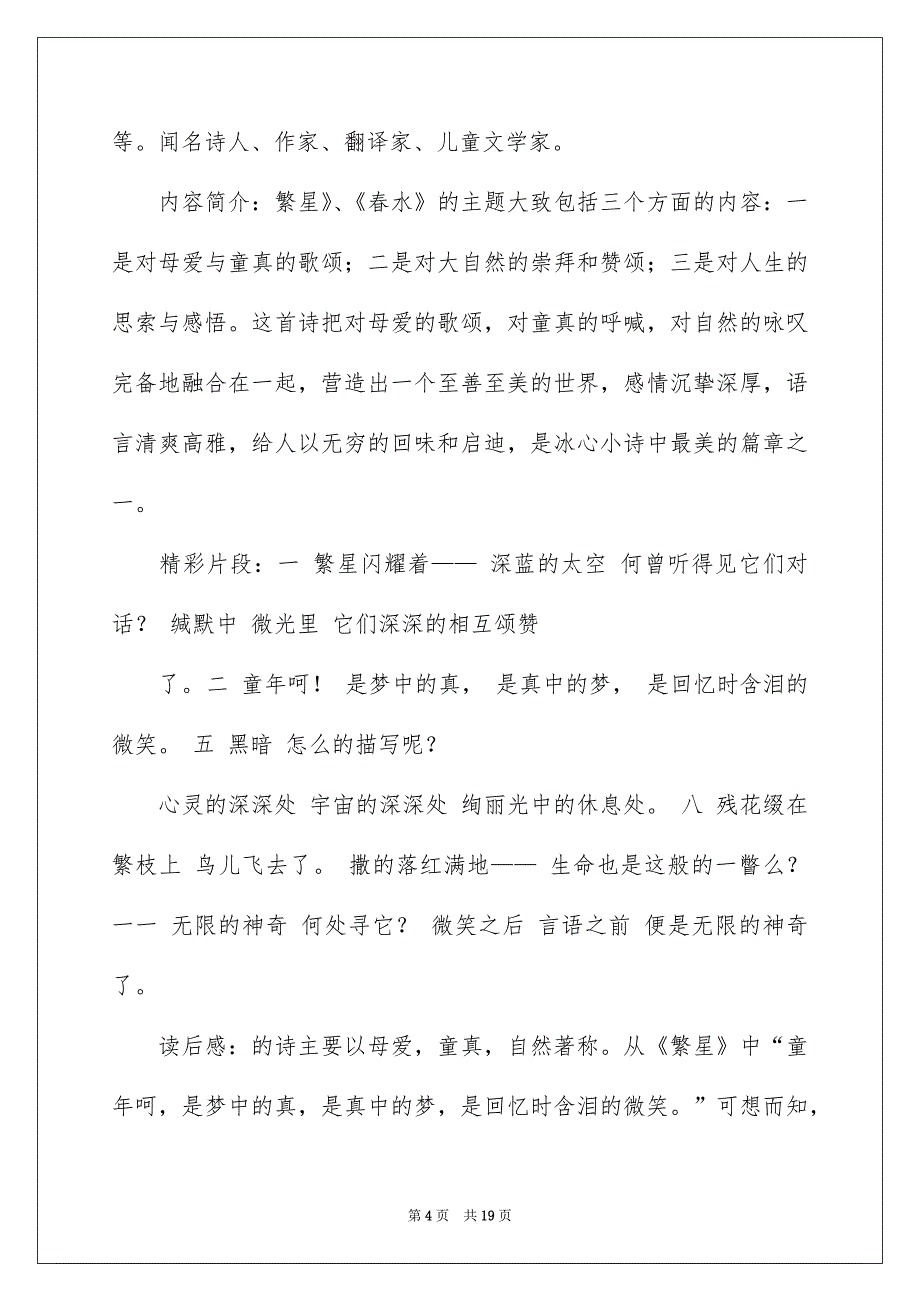 等。闻名诗人、作家、翻译家、儿童文学家。
内容简介：繁星》、《春水》的主题大致包括三个方面的内容：一
是对母爱与童真的歌颂；二是对大自然的崇拜和赞颂；三是对人生的
思索与感悟。这首诗把对母爱的歌颂，对童真的呼喊，对自然的咏叹
完备地融合在一起，营造出一个至善至美的世界，感情沉挚深厚，语
言清爽高雅，给人以无穷的回味和启迪，是冰心小诗中最美的篇章之
一。
精彩片段：一 繁星闪耀着—— 深蓝的太空 何曾听得见它们对
话？ 缄默中 微光里 它们深深的相互颂赞
了。二 童年呵！ 是梦中的真， 是真中的梦， 是回忆时含泪的
微笑。 五 黑暗 怎么的描写呢？
心灵的深深处 宇宙的深深处 绚丽光中的休息处。 八 残花缀在
繁枝上 鸟儿飞去了。 撒的落红满地—— 生命也是这般的一瞥么？
一一 无限的神奇 何处寻它？ 微笑之后 言语之前 便是无限的神奇
了。
读后感：的诗主要以母爱，童真，自然著称。从《繁星》中“童
年呵，是梦中的真，是真中的梦，是回忆时含泪的微笑。”可想而知，
第 4 页 共 19 页